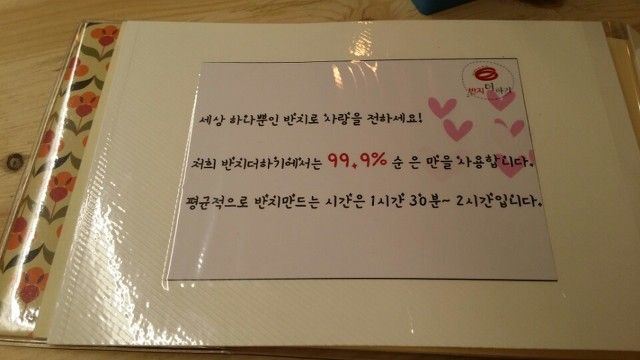 반지더하기
세상 하나뿐인 반지로 사랑을 전하세요!
저희 반지더하기에서는 99.9% 순 은 만을 사용합니다.
평균적으로 반지만드는 시간은 1시간 30분~ 2시간입니다.